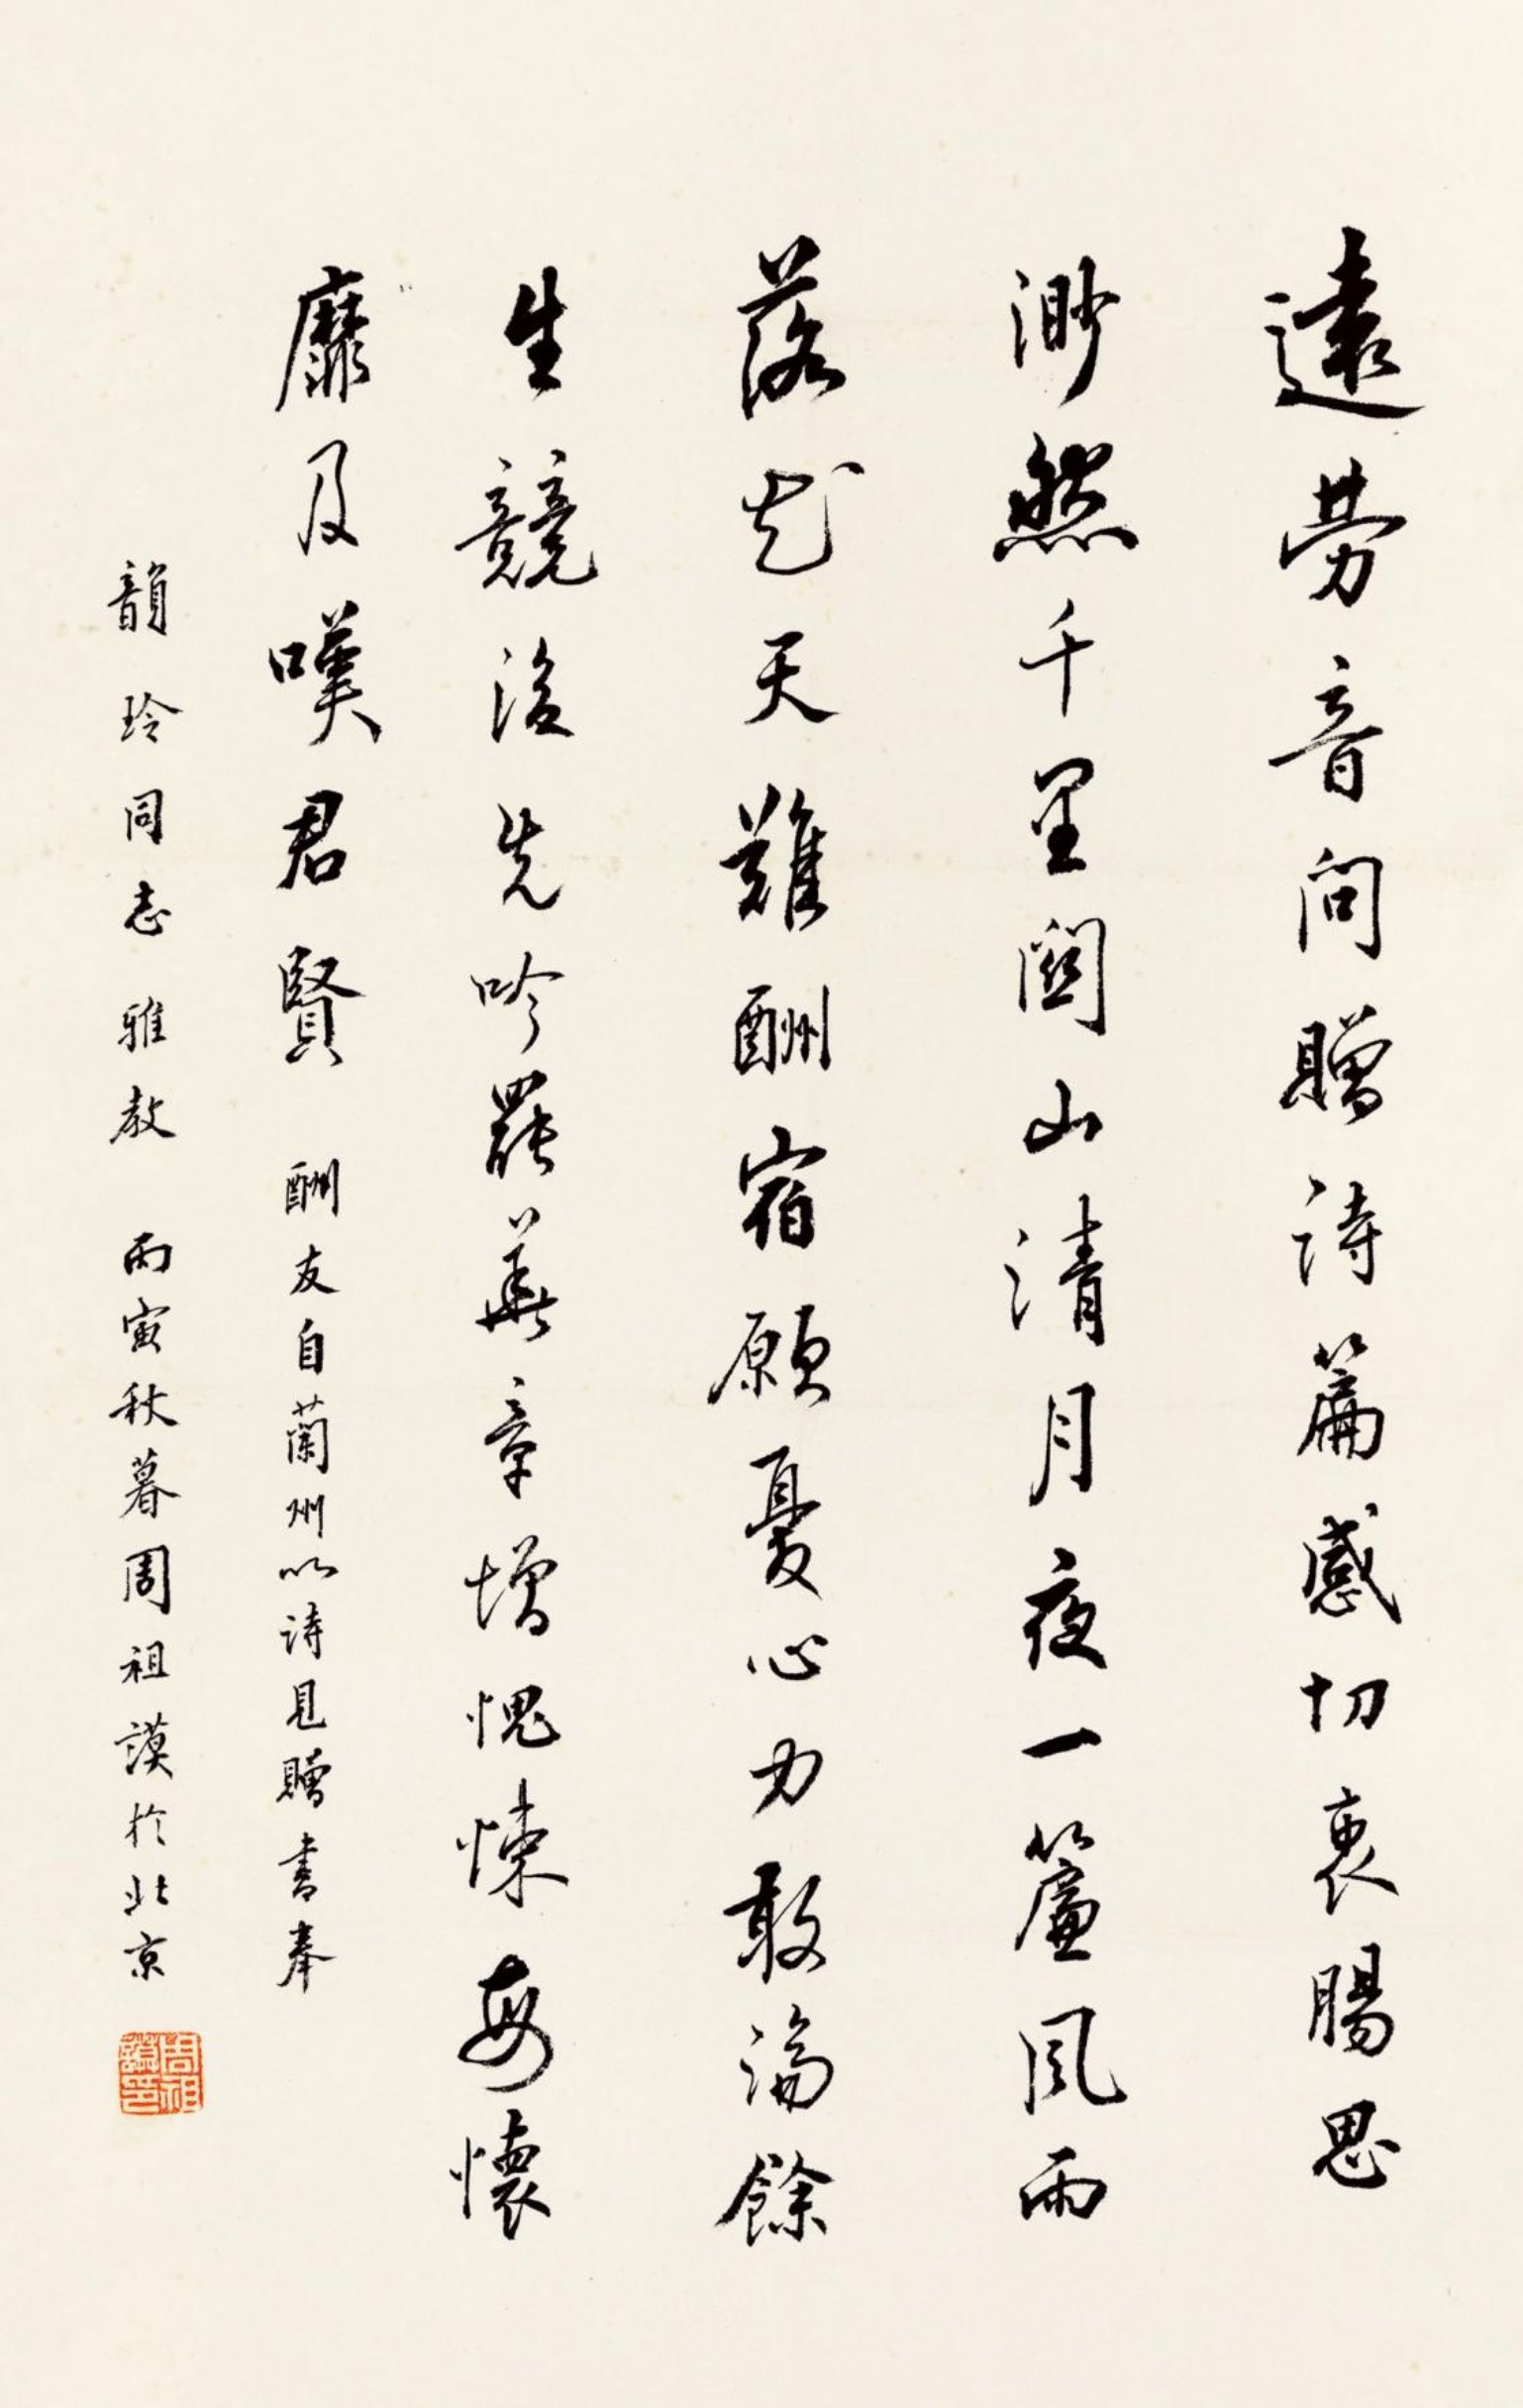 遠勞音問贈詩篇感切衷腸思
渺然千里關山清月夜一簾風雨
落花天難酬宿願憂心力敢論餘
生競後先吟罷華章增愧悚每懷
靡及嘆君賢 酬友自蘭州以詩見贈書奉
韻玲同志雅教 丙寅秋暮周祖謨於北京
周祖謨印